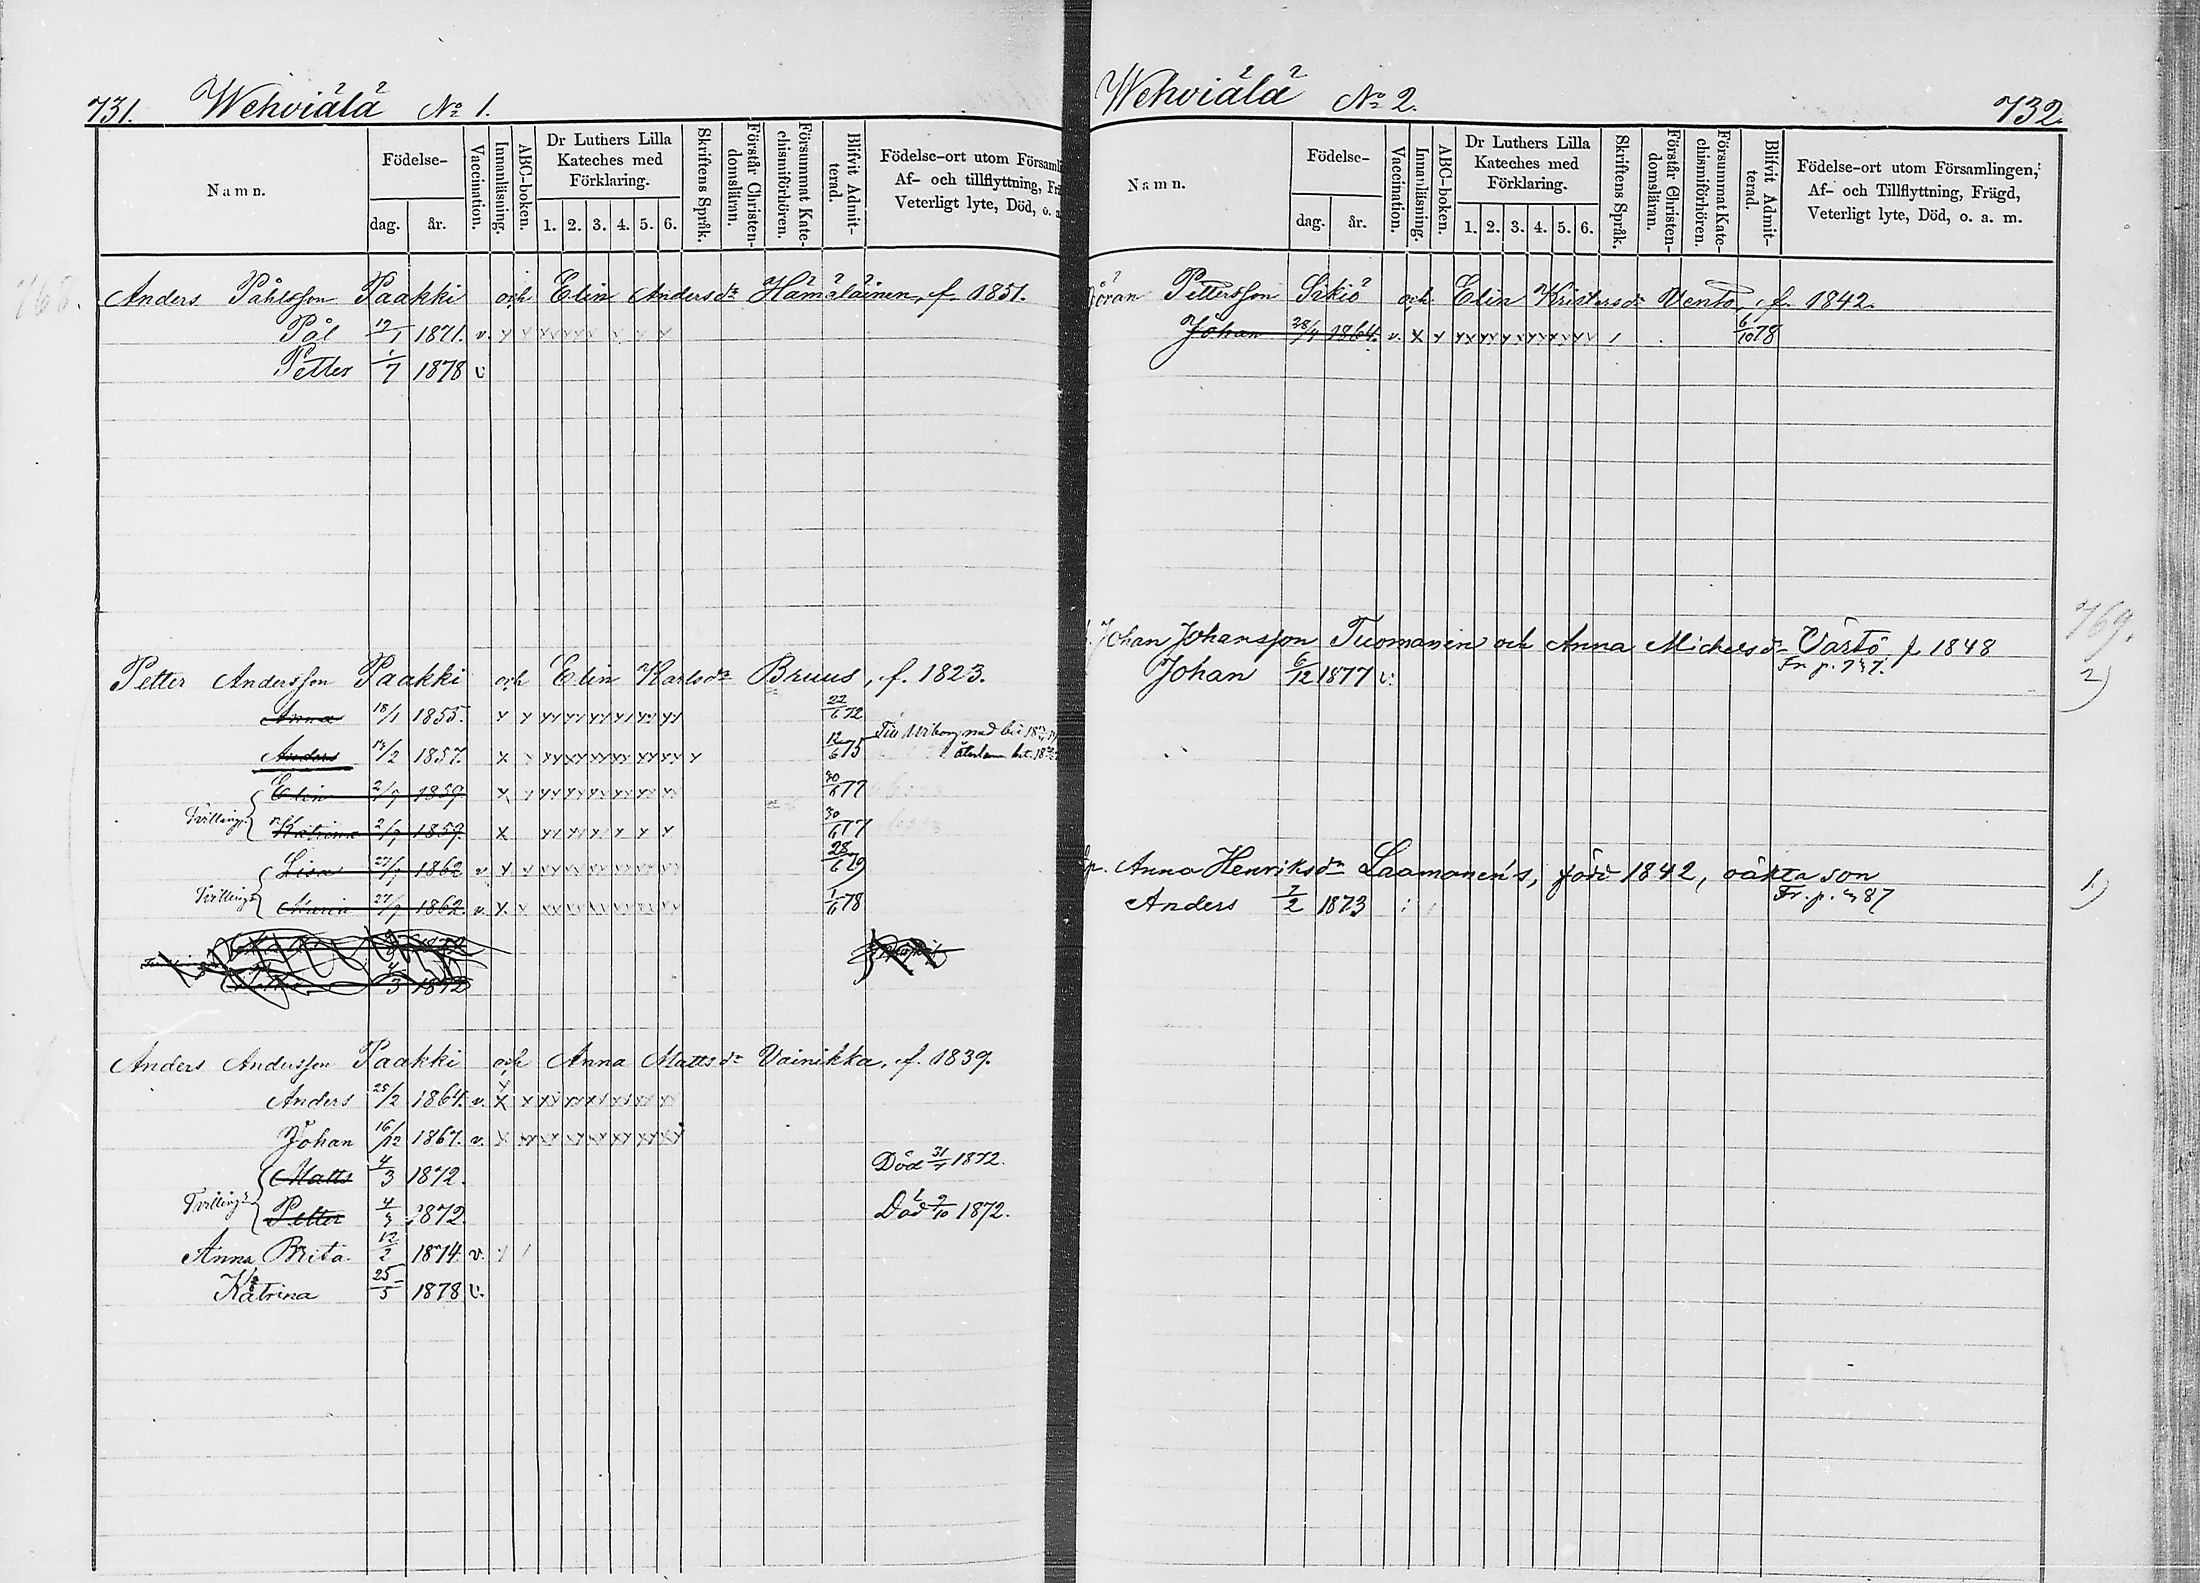 731. Wehviälä No 1.
Namn.
Födelse-
dag. år.
Vaccination.
Innanläsning.
ABC-boken.
Dr Luthers Lilla Kateches med Förklaring.
1. 2. 3. 4. 5. 6.
Skriftens Språk.
Förstår Christendomsläran.
Försummat Katechismiförhören.
Blifvit Admitterad.
Födelse-ort utom Församli
Af- och tillflyttning, Frä
Veterligt lyte, Död, o. a
768.
Anders Påhlsson Paakki och Elin Andersdr Hämäläinen, f. 1851.
Pål 12/1 1871. v.
Petter 1/7 1878 v.
Petter Andersson Paakki och Elin Karlsdr Bruus, f. 1823.
Anna 18/1 1855. 22/6 72
Anders 13/2 1857. 12/6 75 Till Wiborg med
Elin 2/7 1859 30/6 77
Tvillingr Katrina 2/7 1859. 30/6 77
Lisa 27/7 1862 v. 28/6 79
Tvillingr Maria 27/7 1862. v. 1/6 78
3 1872
Anders Andersson Paakki och Anna Mattsdr Vainikka, f. 1839.
Anders 25/2 1864. v.
Johan 16/12 1867. v.
Matts 4/3 1872. Död 31/7 1872.
Tvillingr Petter 4/3 1872. Död 9/10 1872.
Anna Brita 12/2 1874. v.
Katrina 25/5 1878 v.
Wehviälä No 2. 732.
Namn.
Födelse-
dag. år.
Vaccination.
Innanläsning.
ABC-boken.
Dr Luthers Lilla Kateches med Förklaring.
1. 2. 3. 4. 5. 6.
Skriftens Språk.
Förstår Christendomsläran.
Försummat Katechismiförhören.
Blifvit Admitterad.
Födelse-ort utom Församlingen,
Af- och Tillflyttning, Frägd,
Veterligt lyte, Död, o. a. m.
Göran Pettersson Sikiö och Elin Kristersdr Vento, f. 1842.
Johan 28/7 1864. v. 6/10 78
769.
Johan Johansson Tuomanen och Anna Michelsdr Värtö f 1848
Johan 6/12 1877 v. Fr. p. 737. 2)
Anna Henriksdr Laamanen's, född 1842, oäkta son
Anders 7/2 1873 Fr. p. 787 1)